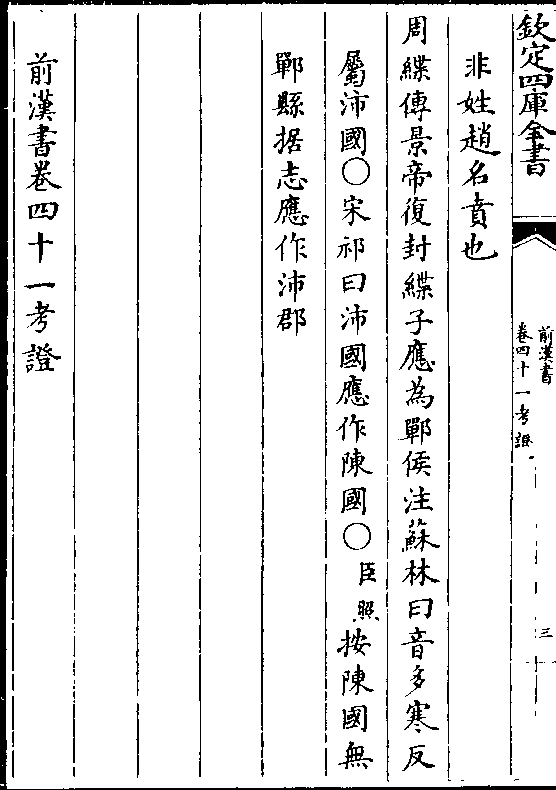 欽定四庫全書
前漢書
卷四十一考證
三
非姓趙名賁也
周緤傳景帝復封緤子應為鄲侯注蘇林曰音多寒反
屬沛國○宋祁曰沛國應作陳國○臣照按陳國無
鄲縣据志應作沛郡
前漢書卷四十一考證